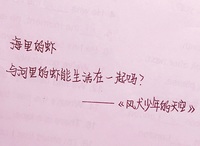 海里的虾
与河里的虾能生活在一起吗?
——《风犬少年的天空》